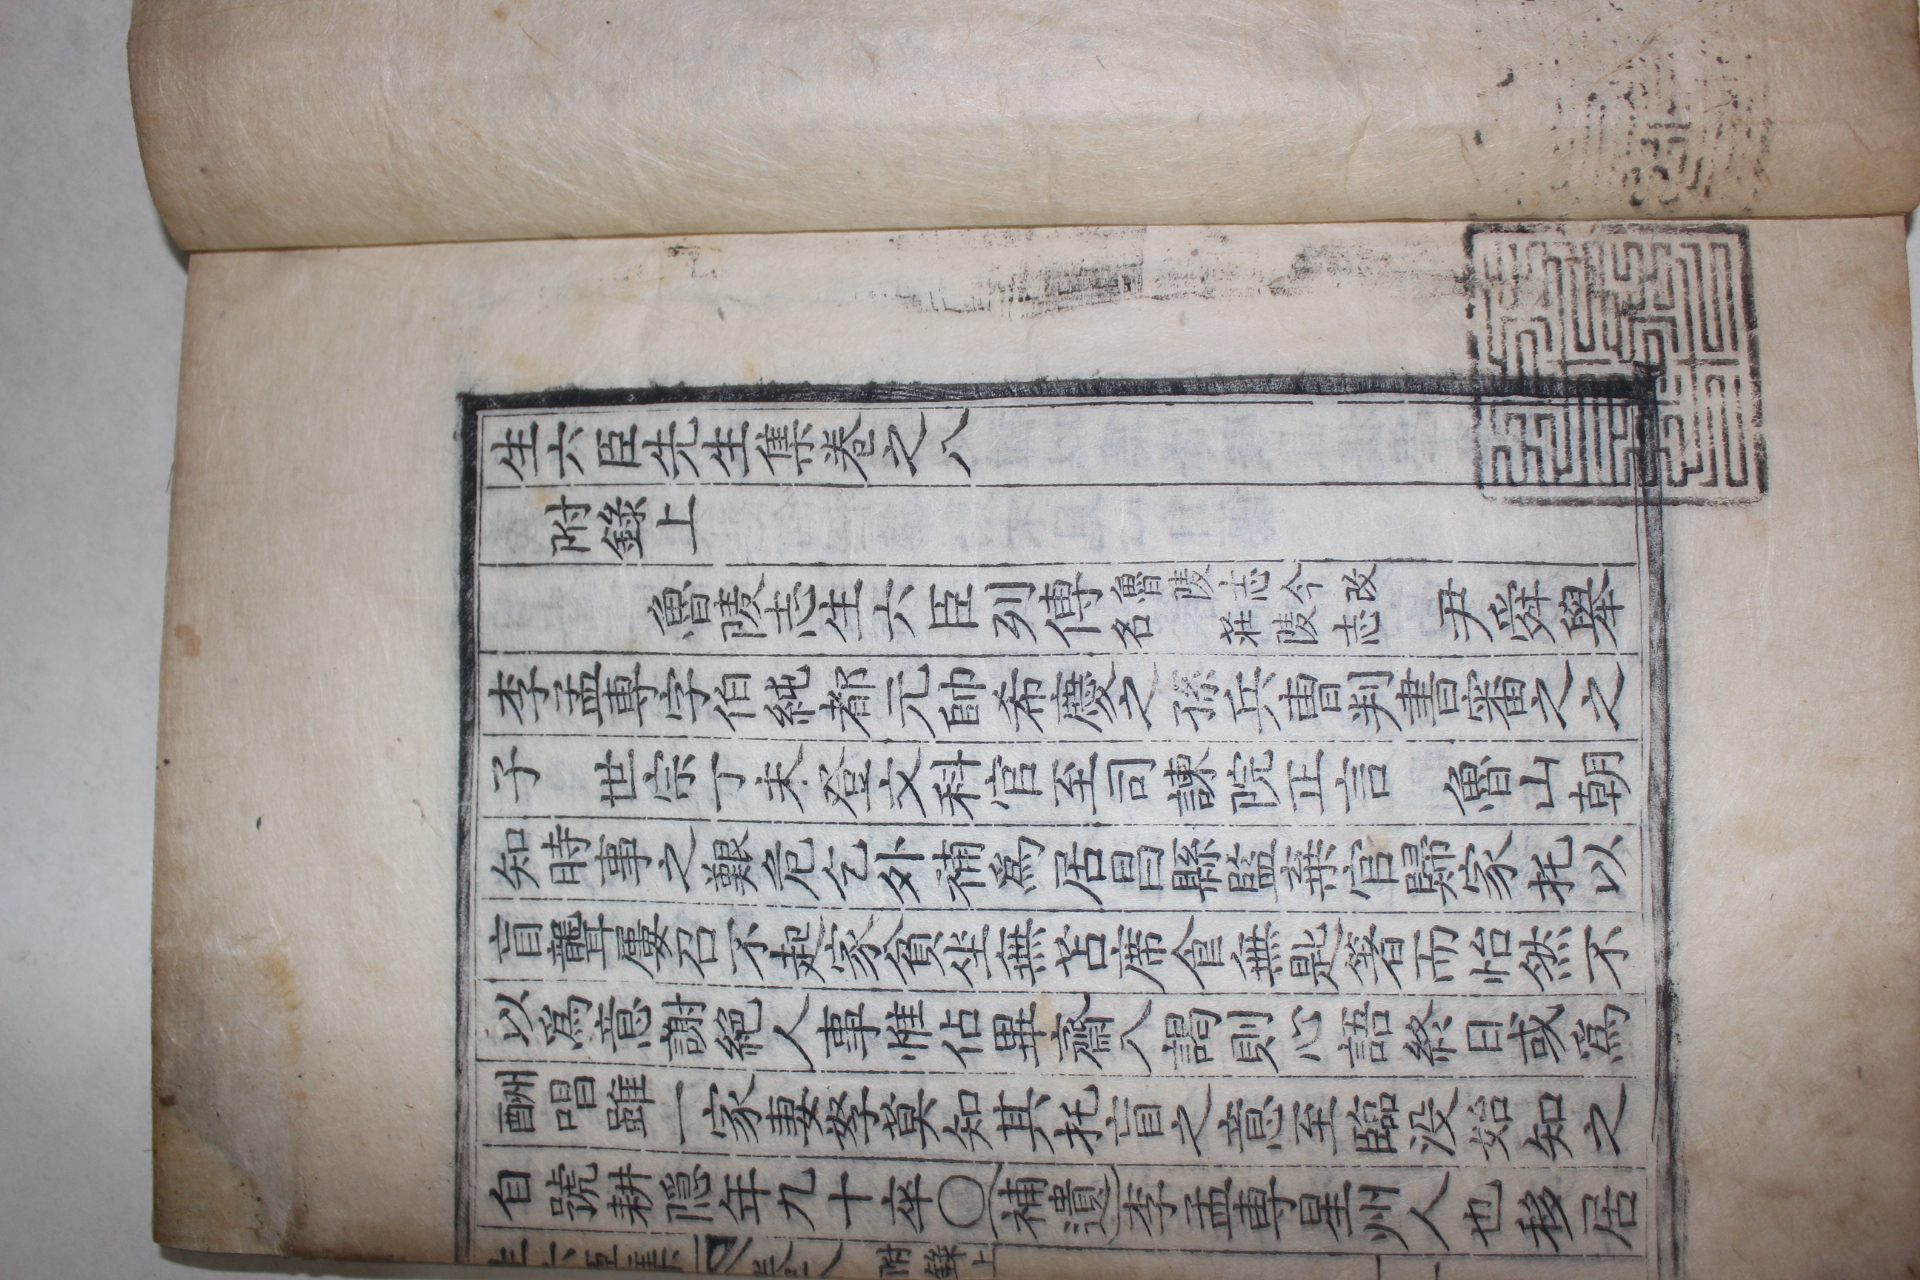 生六臣先生集卷之八
附錄上
魯陵志生六臣列傳 魯陵志今改名莊陵志 尹舜擧
李孟專字伯純都元帥希慶之孫兵曺判書審之之
子 世宗丁未登文科官至司諫院正言 魯山朝
知時事之艱危乞外補爲居昌縣監棄官歸家托以
盲聾屢召不起家貧坐無苫席食無匙箸而怡然不
以爲意謝絕人事惟佔畢齋入謁則心語終日或爲
酬唱雖一家妻孥莫知其托盲之意至臨没始知之
自號耕隱年九十卒〇(補遺)李孟專星州人也移居
生六臣集 卷之八 附錄上 一